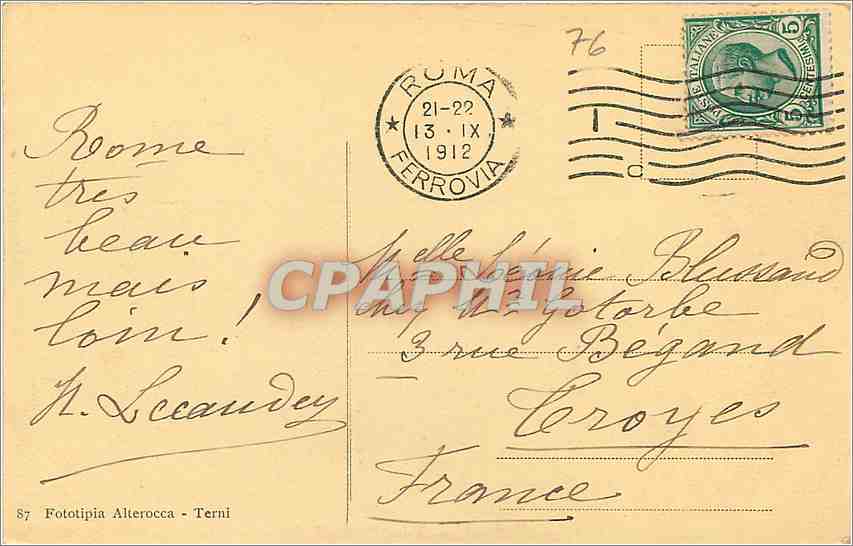 76
ROMA
21-22
13 · IX
1912
FERROVIA
POSTE ITALIANE
5
CENTESIMI
5
Rome
tres
beau
mais
loin !
Melle Léonie Blussaud
chez Me Gotorbe
3 rue Bégand
Troyes
France
CPAPHIL
87 Fototipia Alterocca - Terni